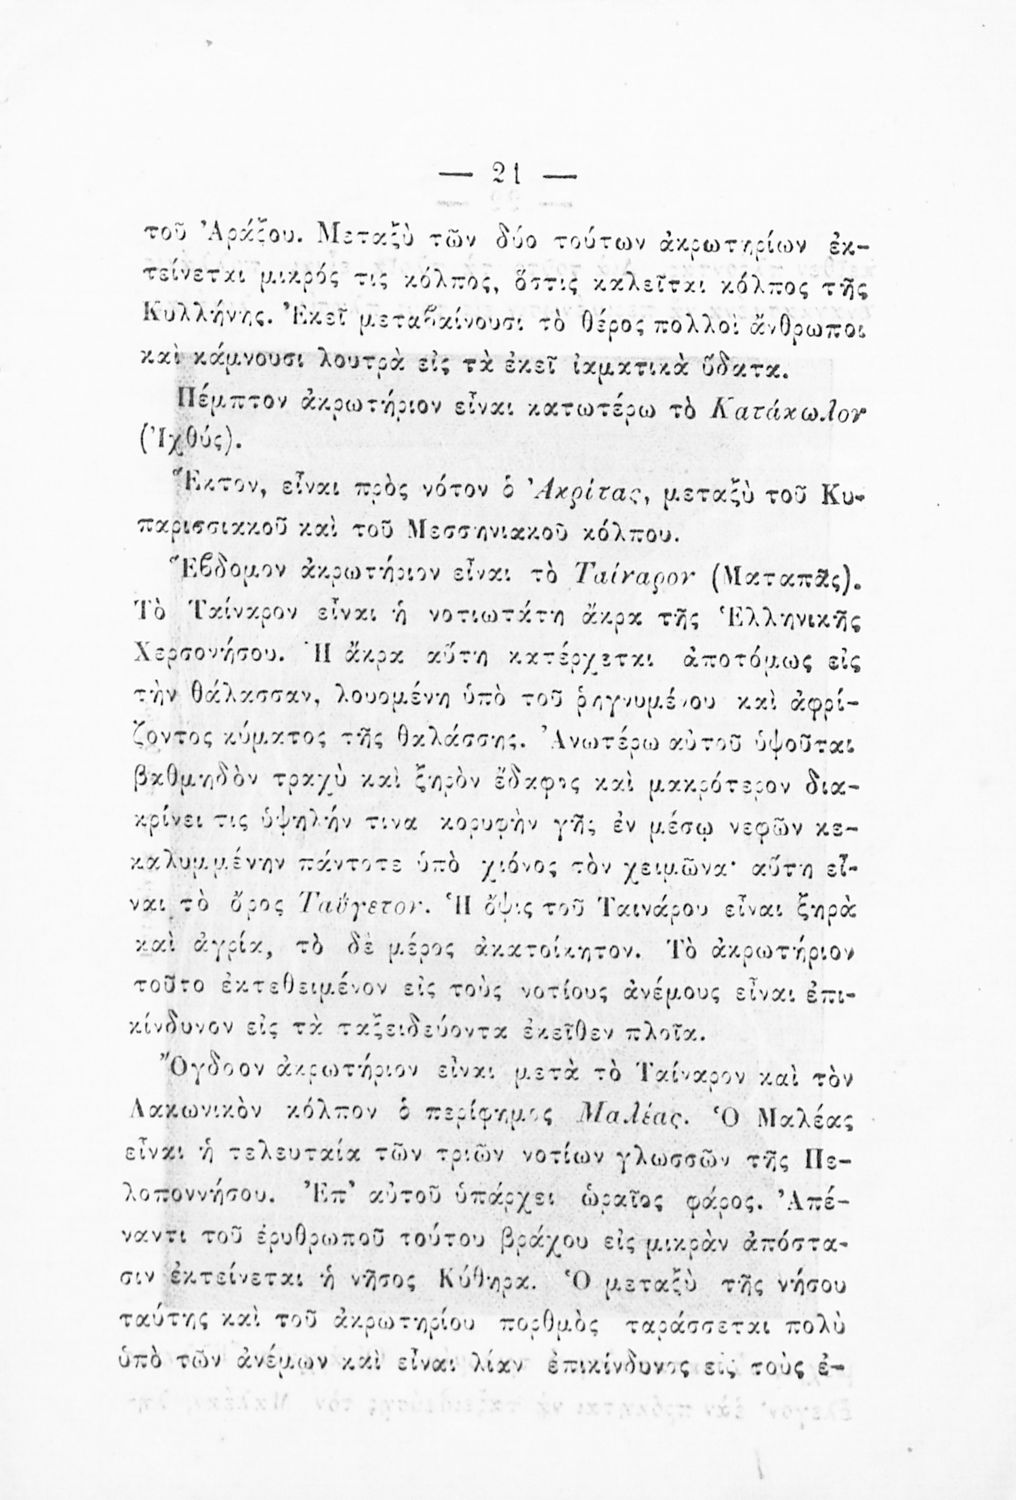 — 21 —
τοῦ Ἀράξου. Μεταξὺ τῶν δύο τούτων ἀκρωτηρίων ἐκ-
τείνεται μικρός τις κόλπος, ὅστις καλεῖται κόλπος τῆς
Κυλλήνης. Ἐκεῖ μεταβαίνουσι τὸ θέρος πολλοὶ ἄνθρωποι
καὶ κάμνουσι λουτρὰ εἰς τὰ ἐκεῖ ἰαματικὰ ὕδατα.
Πέμπτον ἀκρωτήριον εἶναι κατωτέρω τὸ Κατάκωλον
(Ἰχθύς).
Ἕκτον, εἶναι πρὸς νότον ὁ Ἀκρίτας, μεταξὺ τοῦ Κυ-
παρισσιακοῦ καὶ τοῦ Μεσσηνιακοῦ κόλπου.
Ἕβδομον ἀκρωτήριον εἶναι τὸ Ταίναρον (Ματαπᾶς).
Τὸ Ταίναρον εἶναι ἡ νοτιωτάτη ἄκρα τῆς Ἑλληνικῆς
Χερσονήσου. Ἡ ἄκρα αὕτη κατέρχεται ἀποτόμως εἰς
τὴν θάλασσαν, λουομένη ὑπὸ τοῦ ῥηγνυμένου καὶ ἀφρί-
ζοντος κύματος τῆς θαλάσσης. Ἀνωτέρω αὐτοῦ ὑψοῦται
βαθμηδὸν τραχὺ καὶ ξηρὸν ἔδαφος καὶ μακρότερον δια-
κρίνει τις ὑψηλήν τινα κορυφὴν γῆς ἐν μέσῳ νεφῶν κε-
καλυμμένην πάντοτε ὑπὸ χιόνος τὸν χειμῶνα· αὕτη εἶ-
ναι τὸ ὄρος Ταΰγετον. Ἡ ὄψις τοῦ Ταινάρου εἶναι ξηρὰ
καὶ ἀγρία, τὸ δὲ μέρος ἀκατοίκητον. Τὸ ἀκρωτήριον
τοῦτο ἐκτεθειμένον εἰς τοὺς νοτίους ἀνέμους εἶναι ἐπι-
κίνδυνον εἰς τὰ ταξειδεύοντα ἐκεῖθεν πλοῖα.
Ὄγδοον ἀκρωτήριον εἶναι μετὰ τὸ Ταίναρον καὶ τὸν
Λακωνικὸν κόλπον ὁ περίφημος Μαλέας. Ὁ Μαλέας
εἶναι ἡ τελευταία τῶν τριῶν νοτίων γλωσσῶν τῆς Πε-
λοποννήσου. Ἐπ’ αὐτοῦ ὑπάρχει ὡραῖος φάρος. Ἀπέ-
ναντι τοῦ ἐρυθρωποῦ τούτου βράχου εἰς μικρὰν ἀπόστα-
σιν ἐκτείνεται ἡ νῆσος Κύθηρα. Ὁ μεταξὺ τῆς νήσου
ταύτης καὶ τοῦ ἀκρωτηρίου πορθμὸς ταράσσεται πολὺ
ὑπὸ τῶν ἀνέμων καὶ εἶναι λίαν ἐπικίνδυνος εἰς τοὺς ἐ-